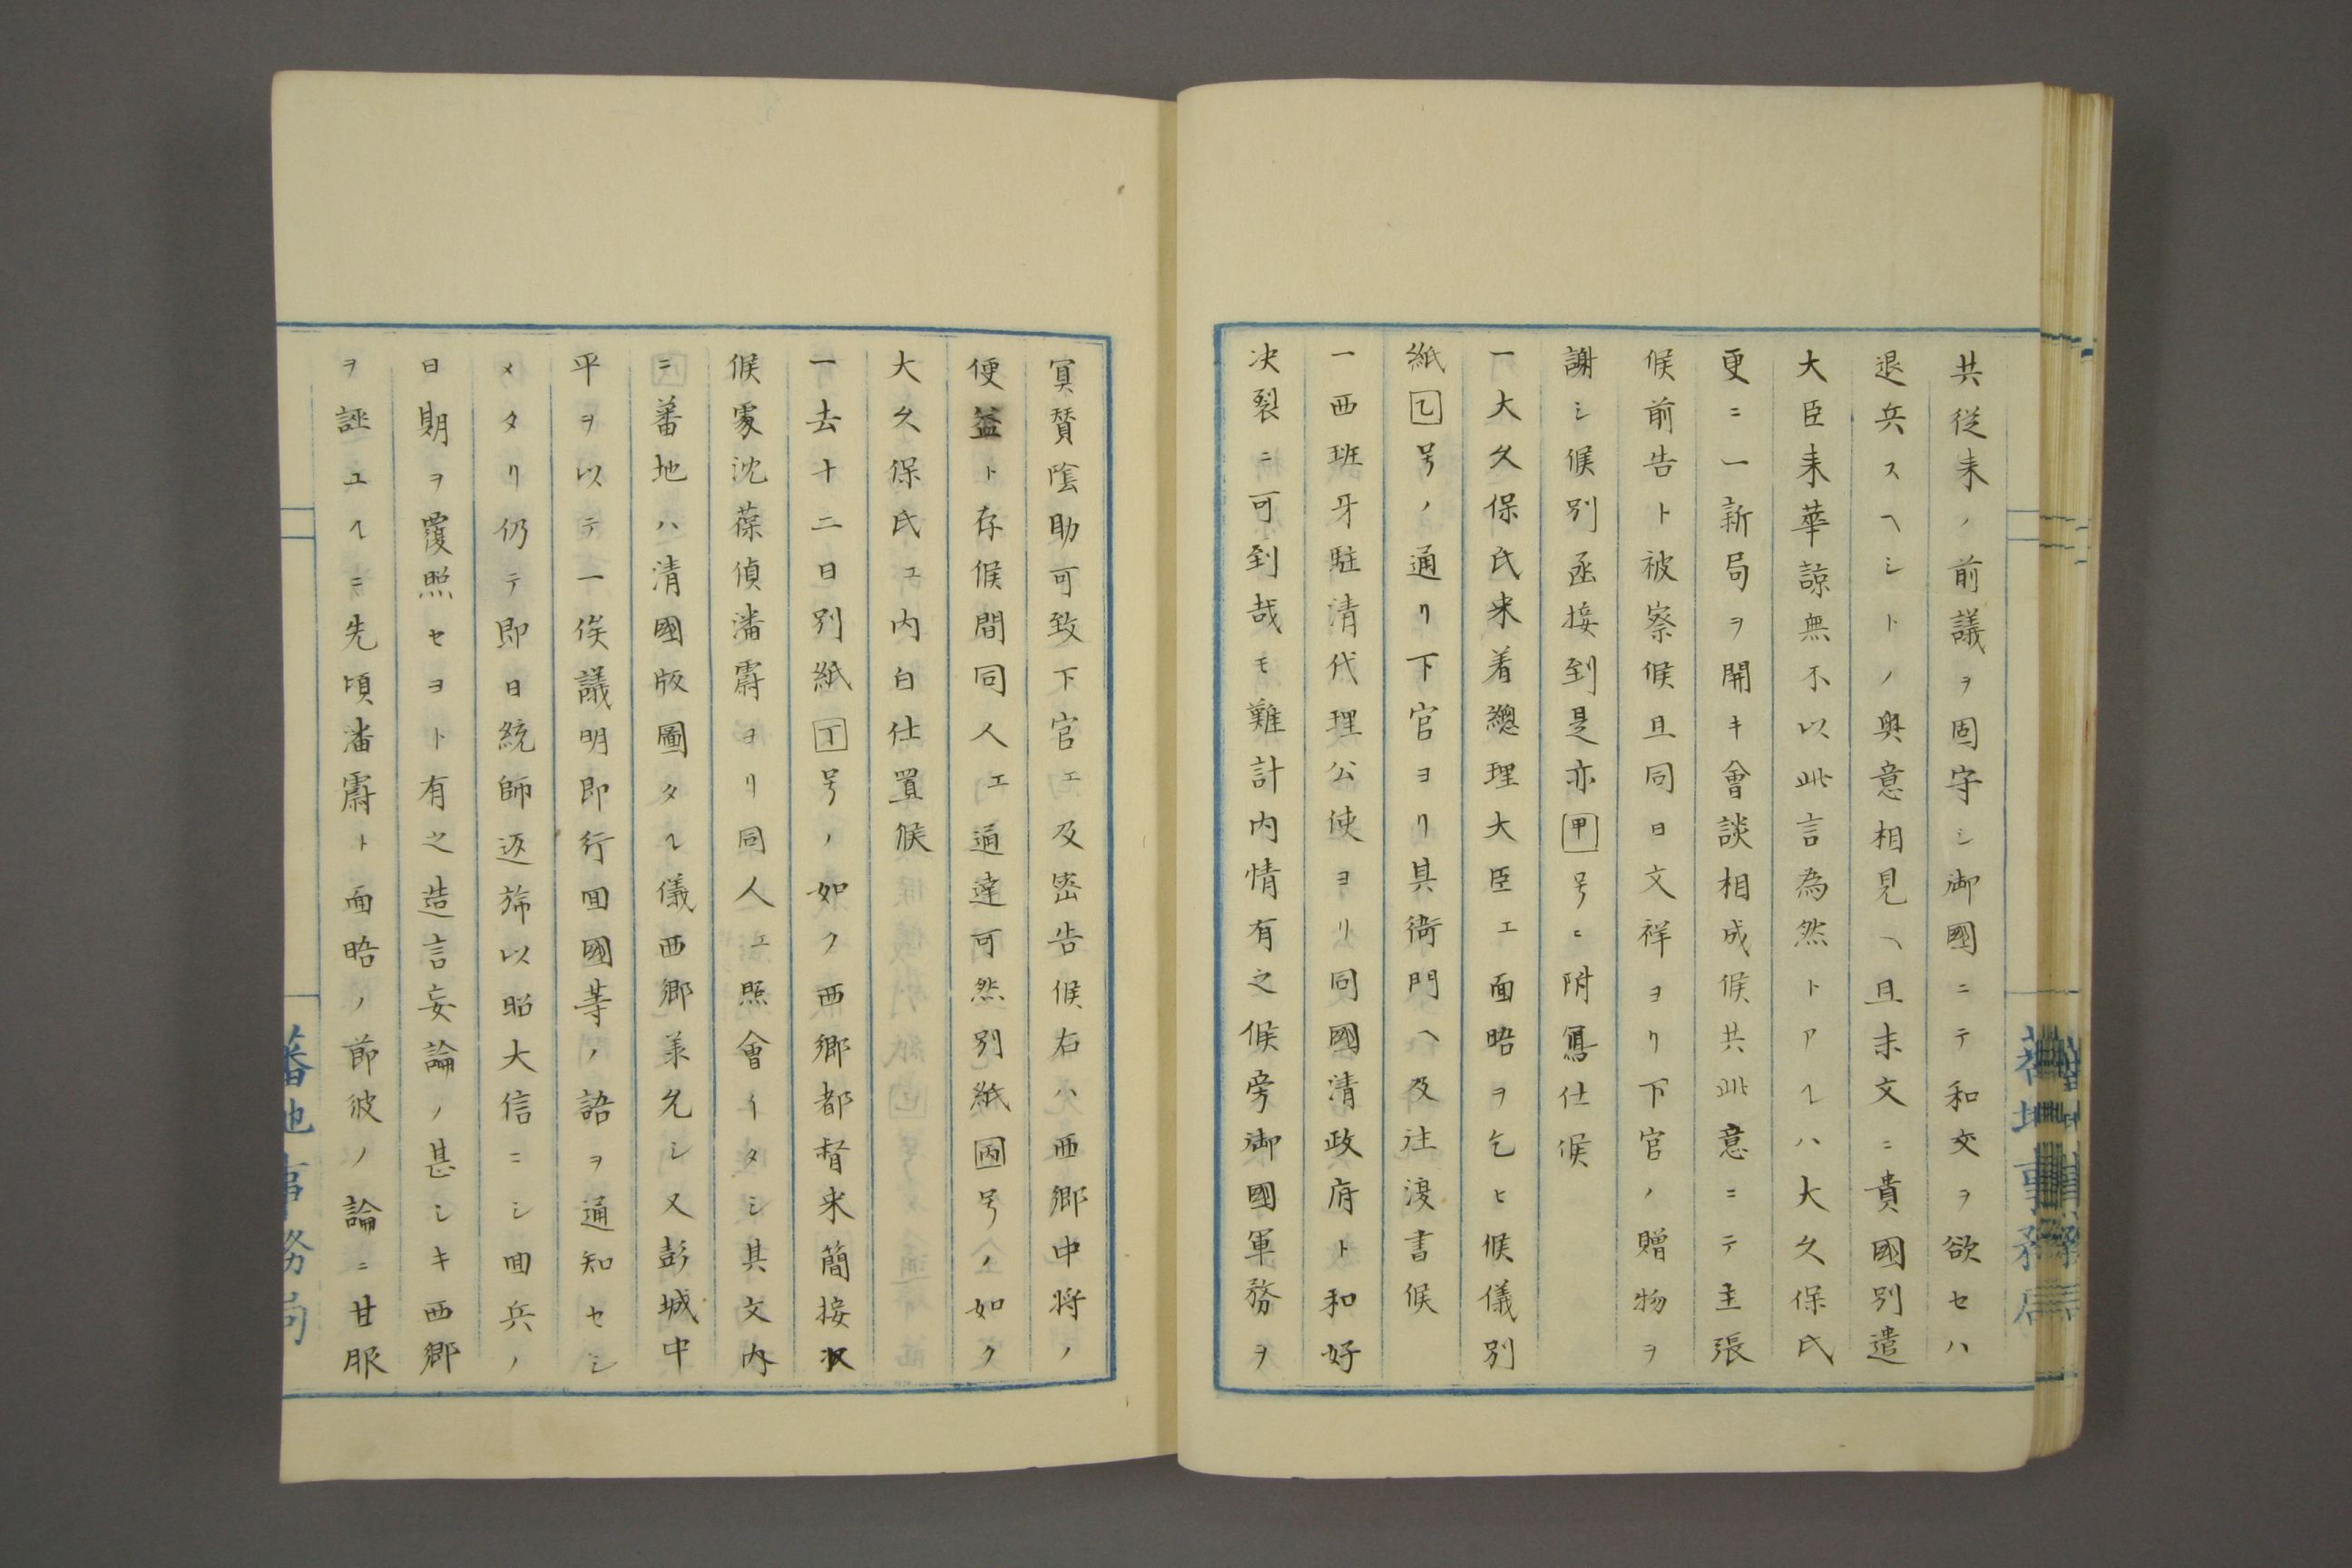 共従来ノ前議ヲ固守シ御國ニテ和交ヲ欲セハ
退兵スヘシトノ輿意相見ヘ且来文ニ貴國別遣
大臣来華諒無不以此言為然トアルハ大久保氏
更ニ一新局ヲ開キ會談相成候共此意ニテ主張
候前告ト被察候且同日文祥ヨリ下官ノ贈物ヲ
謝シ候別函接到是亦甲号ニ附寫仕候
一大久保氏来着總理大臣エ面晤ヲ乞ヒ候儀別
紙乙号ノ通リ下官ヨリ具衙門ヘ及往復書候
一西班牙駐清代理公使ヨリ同國清政府ト和好
决裂ニ可到哉モ難計内情有之候旁御國軍務ヲ
冥賛陰助可致下官エ及密告候右ハ西郷中将ノ
便益ト存候間同人エ通達可然別紙丙号ノ如ク
大久保氏エ内白仕置候
一去十二日別紙丁号ノ如ク西郷都督来簡接收
候處沈葆偵潘霨ヨリ同人エ照會イタシ其文内
ニ蕃地ハ清國版圖タル儀西郷業允シ又彭城中
平ヲ以テ一俟議明即行回國等ノ語ヲ通知セシ
メタリ仍テ即日統師返旆以昭大信ニシ回兵ノ
日期ヲ覆照セヨト有之造言妄論ノ甚シキ西郷
ヲ誣ユルニ先頃潘霨ト面晤ノ節彼ノ論ニ甘服
蕃地事務局